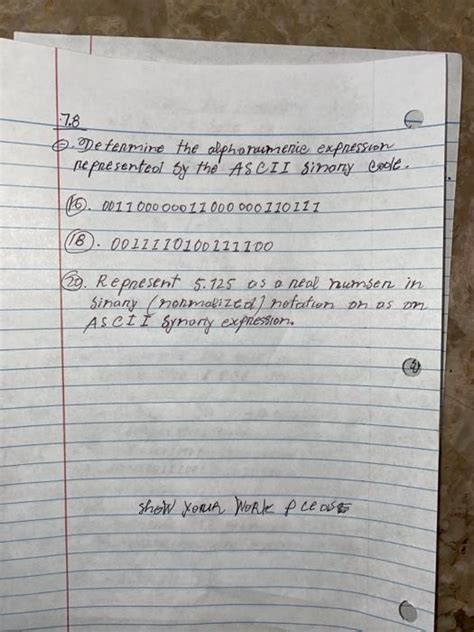 7.8
⊖. Determine the alphanumeric expression
represented by the ASCII Binary code.
16). 001100000011000000110111
18). 0011110100111100
20. Represent 5.125 as a real number in
Binary (normalized) notation or as an
ASCII Bynary expression.
Show your Work please